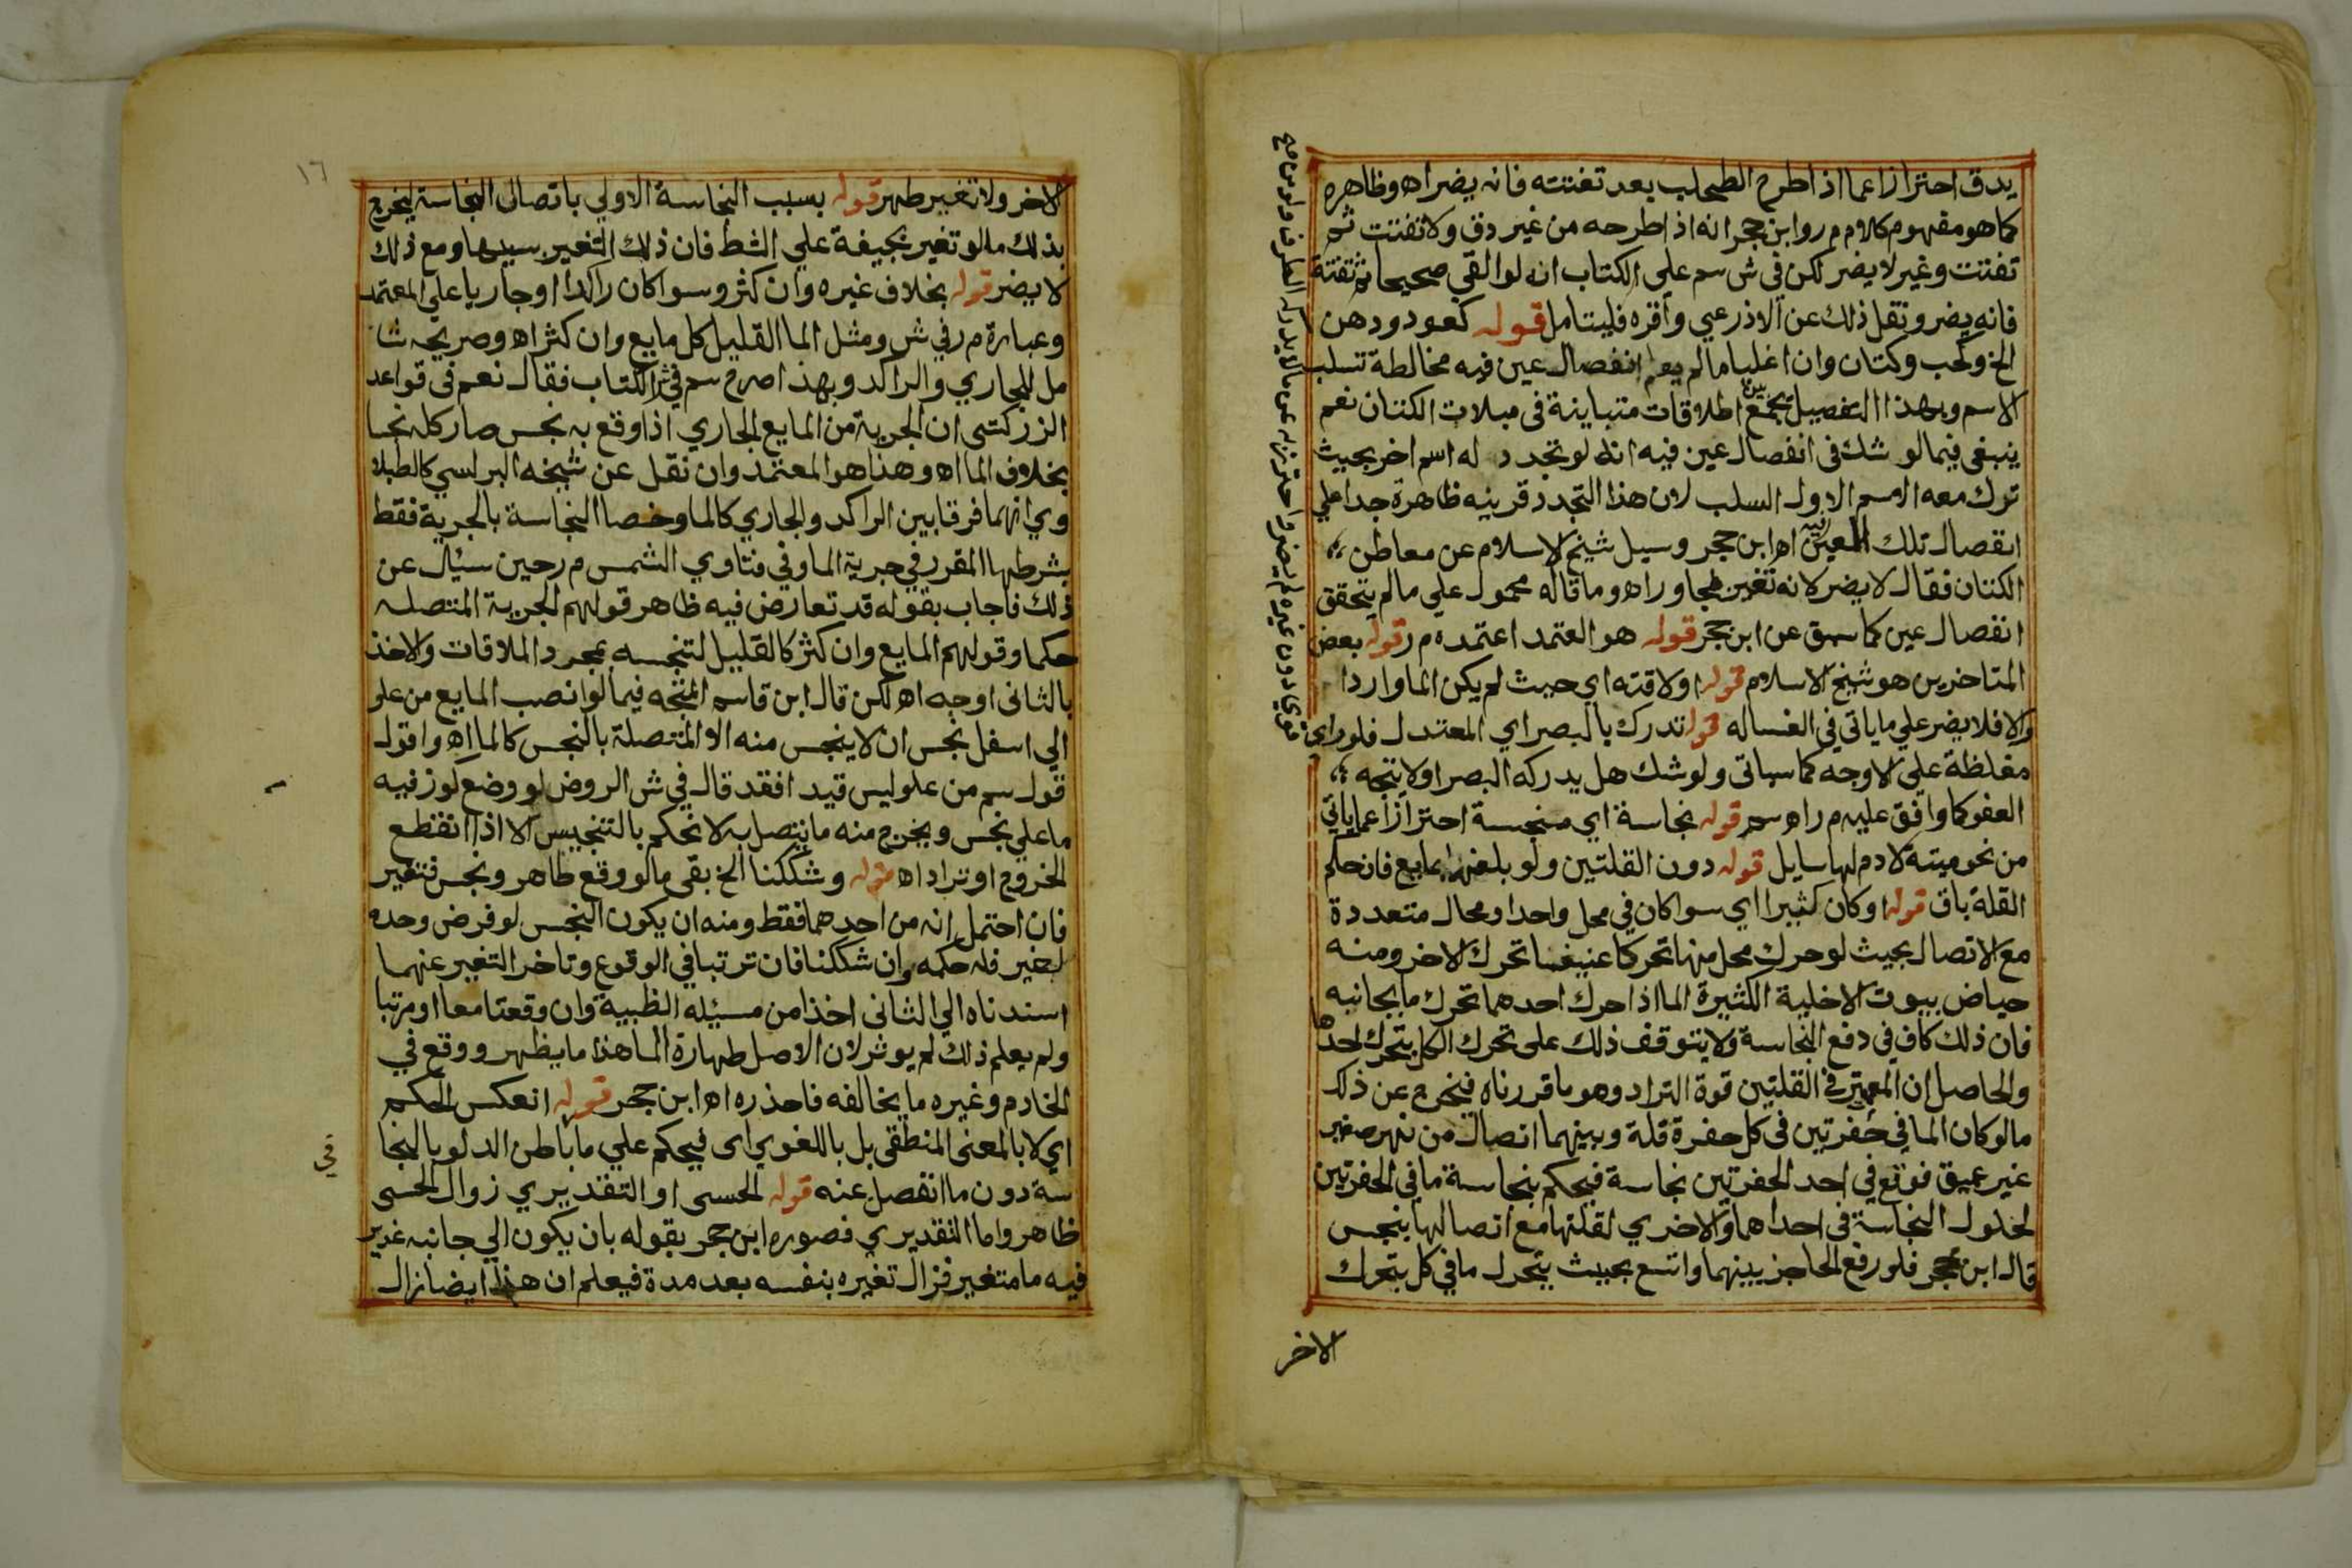 يدق احترازا عما اذا طرح الطحلب بعد تفتته فانه يضر اه وظاهره
كما هو مفهوم كلام م ر وابن حجر انه اذا طرحه من غير دق ولا تفتت ثم
تفتت وغير لا يضر لكن في ش سم علي الكتاب انه لو القي صحيحا ثم تفتته
فانه يضر ونقل ذلك عن الاذرعي واقره فليتامل قوله كعود ودهن
الخ وكحب وكتان وان اغليا ما لم يعلم انفصال عين فيه مخالطة تسلب
الاسم وبهذا التفصيل يجمع بين اطلاقات متباينة في مبلات الكتان نعم
ينبغي فيما لو شك في انفصال عين فيه انه لو تجدد له اسم اخر بحيث
ترك معه الاسم الاول السلب لان هذا التجدد قرينه ظاهرة جدا علي
انفصال تلك العين فيه اه ابن حجر وسيل شيخ الاسلام عن معاطن
الكتان فقال لا يضر لانه تغير بمجاور اه وما قاله محمول علي ما لم يتحقق
انفصال عين كما سبق عن ابن حجر قوله هو المعتمد اعتمده م ر قوله بعض
المتاخرين هو شيخ الاسلام قوله او لاقته اي حيث لم يكن الما واردا
والا فلا يضر علي ما ياتي في الغساله قوله تدرك بالبصر اي المعتدل فلو راي
مغلظة علي الاوجه كما سياتي ولو شك هل يدركه البصر او لا يتجه
العفو كما وافق عليه م ر اه سم قوله نجاسة اي منجسة احترازا عما ياتي
من نحو ميتة لا دم لها سايل قوله دون القلتين ولو بلغهما بمايع فان حكم
القلة باق قوله او كان كثيرا اي سوا كان في محل واحد او محال متعددة
مع الاتصال بحيث لو حرك محل منها تحركا عنيفا تحرك الاخر ومنه
حياض بيوت الاخلية الكثيرة الما اذا حرك احدهما تحرك ما بجانبه
فان ذلك كاف في دفع النجاسة ولا يتوقف ذلك علي تحرك الكل بتحرك احدها
والحاصل ان المعتبر في القلتين قوة التراد وهو ما قررناه فيخرج عن ذلك
ما لو كان الما في حفرتين في كل حفرة قلة وبينهما اتصال من نهر صغير
غير عميق فوقع في احد الحفرتين نجاسة فيحكم بنجاسة ما في الحفرتين
لحلول النجاسة في احداهما والاخري لقلتها مع اتصالها بنجس
قال ابن حجر فلو رفع الحاجز بينهما واتسع بحيث يتحرك ما في كل بتحرك
الاخر
١٦
الاخر ولا تغير طهر قوله بسبب النجاسة الاولي باتصال النجاسة ليخرج
بذلك ما لو تغير بجيفة علي الشط فان ذلك التغير بسببها ومع ذلك
لا يضر قوله بخلاف غيره وان كثر وسوا كان راكدا او جاريا علي المعتمد
وعبارة م ر في ش ومثل الما القليل كل مايع وان كثر اه وصريحه شا
مل للجاري والراكد وبهذا صرح سم في ش الكتاب فقال نعم في قواعد
الزركشي ان الجرية من المايع الجاري اذا وقع به نجس صار كله نجسا
بخلاف الما اه وهذا هو المعتمد وان نقل عن شيخه البرلسي كالطبلا
وي انهما فرقا بين الراكد والجاري كالما وخصا النجاسة بالجرية فقط
بشرطها المقرر في جرية الما وفي فتاوي الشمس م ر حين سئل عن
ذلك فاجاب بقوله قد تعارض فيه ظاهر قولهم الجرية المتصله
حكما وقولهم المايع وان كثر كالقليل لتنجسه بمجرد الملاقات والاخذ
بالثاني اوجه اه لكن قال ابن قاسم المتجه فيما لو انصب المايع من علو
الي اسفل نجس ان لا ينجس منه الا المتصلة بالنجس كالما اه واقول
قول سم من علو ليس قيدا فقد قال في ش الروض لو وضع لوز فيه
ما علي نجس ويخرج منه ما يتصل به لا نحكم بالتنجيس الا اذا انقطع
الخروج او تراد اه قوله وشككنا الخ بقي ما لو وقع طاهر ونجس فتغير
فان احتمل انه من احدهما فقط ومنه ان يكون النجس لو فرض وحده
لغير فله حكمه وان شككنا فان ترتبا في الوقوع وتاخر التغير عنهما
اسندناه الي الثاني اخذا من مسيله الظبية وان وقعتا معا او مرتبا
ولم يعلم ذلك لم يوثر لان الاصل طهارة الما هذا ما يظهر ووقع في
الخادم وغيره ما يخالفه فاحذره اه ابن حجر قوله انعكس الحكم
اي لا بالمعني المنطقي بل باللغوي اي فيحكم علي ما باطن الدلو بالنجا
سة دون ما انفصل عنه قوله الحسي او التقديري زوال الحسي
ظاهر واما التقديري فصوره ابن حجر بقوله بان يكون الي جانبه غدير
فيه ما متغير فزال تغيره بنفسه بعد مدة فيعلم ان هذا ايضا زال
في